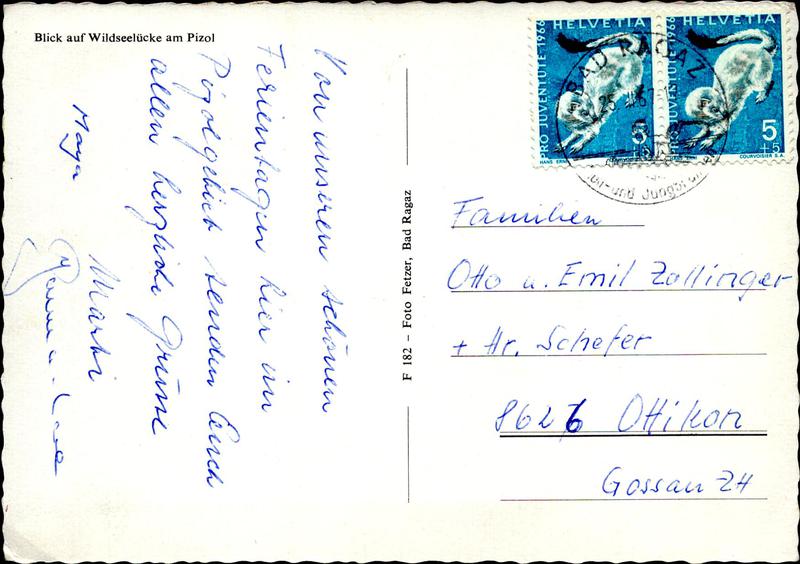 Blick auf Wildseelücke am Pizol
Von unseren schönen
Ferientagen hier im
Pizolgebiet senden Euch
allen herzliche Grüsse
Maya
Marti
F 182 – Foto Fetzer, Bad Ragaz
HELVETIA
PRO JUVENTUTE 1966
5
+5
HELVETIA
PRO JUVENTUTE 1966
5
+5
COURVOISIER S.A.
BAD RAGAZ
Familien
Otto u. Emil Zollinger
+ Hr. Schefer
8626 Ottikon
Gossau ZH